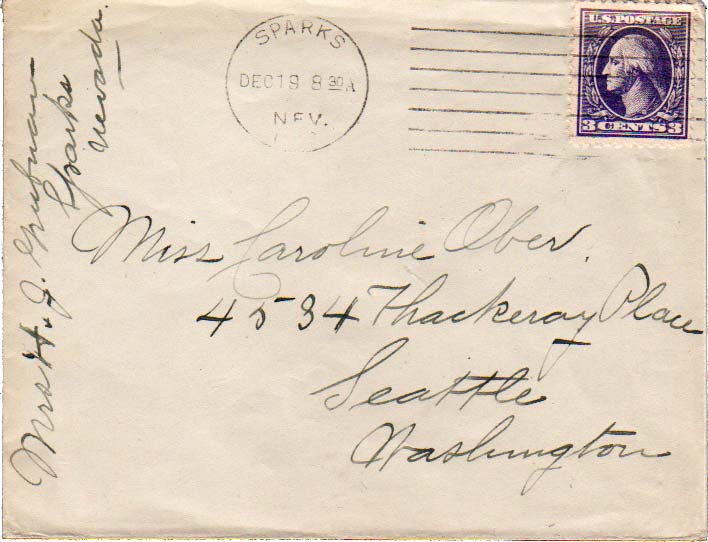 SPARKS
DEC 19 8 30 A
NEV.
U.S. POSTAGE
3 CENTS 3
Mrs H. J.
Sparks
Nevada.
Miss Caroline Ober.
4534 Thackeray Place
Seattle
Washington